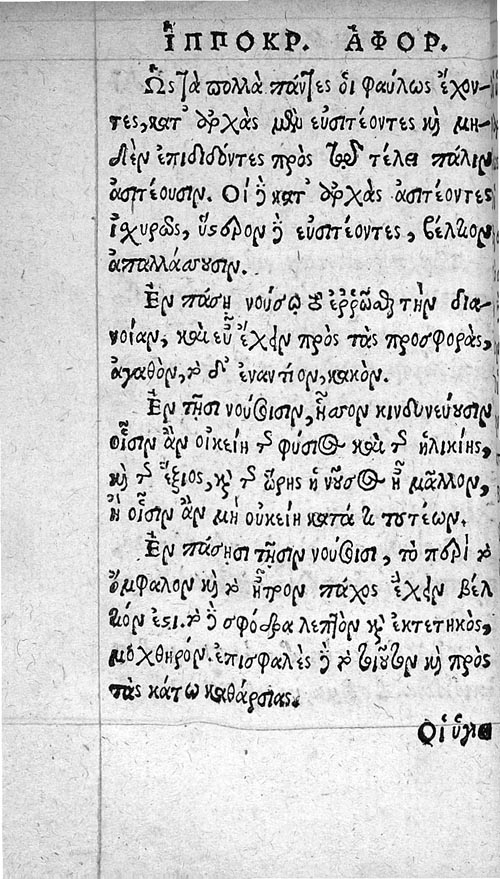 ἹΠΠΟΚΡ. ἈΦΟΡ.
Ὡς τὰ πολλὰ πάντες ὁι φαύλως ἔχον-
τες, κατ' ἀρχὰς μὲν εὐσιτέοντες καὶ μη-
δὲν ἐπιδιδόντες πρὸς τῷ τέλει πάλιν
ἀσιτέουσιν. Οἱ δὲ κατ' ἀρχὰς ἀσιτέοντες
ἰχυρῶς, ὕστερον δὲ εὐσιτέοντες, βέλτιον
ἀπαλλάσσουσιν.
Ἐν πάσῃ νούσῳ τὸ ἐῤῥῶσθαι τὴν δια-
νοίαν, καὶ εὖ ἔχειν πρὸς τὰς προσφορὰς,
ἀγαθὸν, τὸ δ' ἐναντίον, κακὸν.
Ἐν τῇσι νούσοισιν, ἧσσον κινδυνεύουσιν
οἷσιν ἂν οἰκείη τῆς φύσιος καὶ τῆς ἡλικίης,
καὶ τῆς ἕξιος, καὶ τῆς ὥρης ἡ νοῦσος ᾖ μᾶλλον,
ἢ οἷσιν ἂν μὴ οὐκείη κατά τι τουτέων.
Ἐν πάσῃσι τῇσιν νούσοισι, τὸ περὶ τὸ
ὄμφαλον καὶ τὸ ἦτρον πάχος ἔχειν βέλ
τιόν ἐστι. τὸ δὲ σφόδρα λεπτὸν καὶ ἐκτετηκὸς,
μοχθηρόν. ἐπισφαλὲς δὲ τὸ τοιοῦτον καὶ πρὸς
τὰς κάτω καθάρσιας.
Οἱ ὑγιε